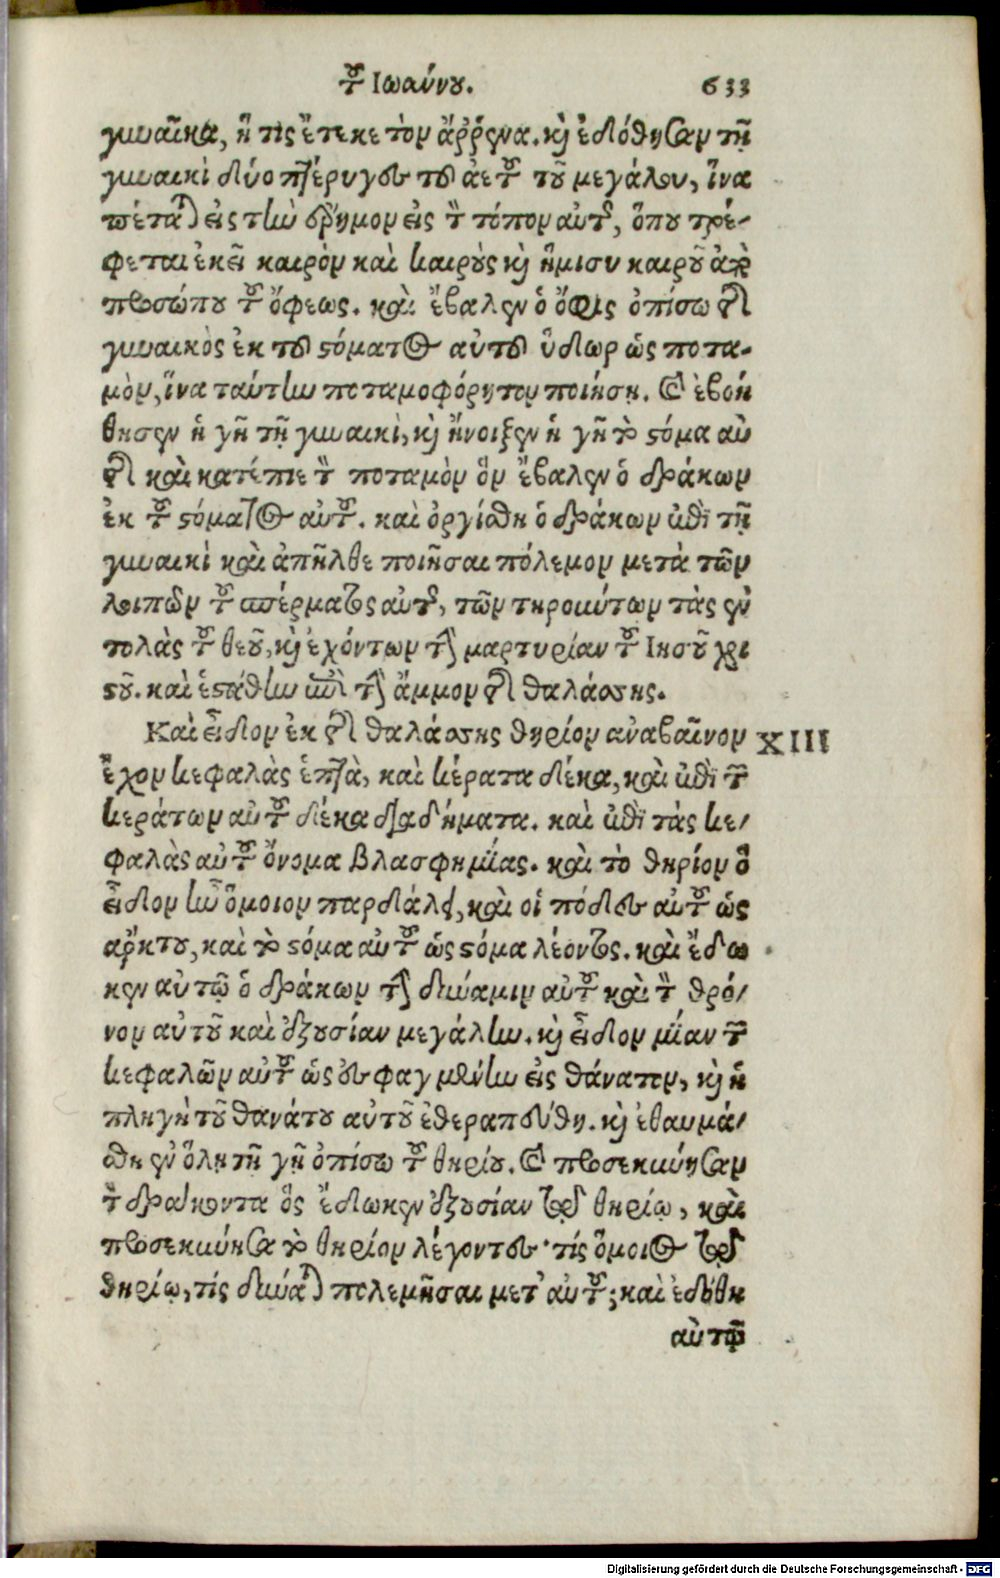 τοῦ Ἰωάννου. 633
γυναῖκα, ἥ τις ἔτεκε τὸν ἄῤῥενα. καὶ ἐδόθησαν τῇ
γυναικὶ δύο πτέρυγες τοῦ ἀετοῦ τοῦ μεγάλου, ἵνα
πέταται εἰς τὴν ἔρημον εἰς τὸν τόπον αὐτῆς, ὅπου τρέ-
φεται ἐκεῖ καιρὸν καὶ καιροὺς καὶ ἥμισυ καιροῦ ἀπὸ
προσώπου τοῦ ὄφεως. καὶ ἔβαλεν ὁ ὄφις ὀπίσω τῆς
γυναικὸς ἐκ τοῦ στόματος αὐτοῦ ὕδωρ ὡς ποτα-
μὸν, ἵνα ταύτην ποταμοφόρητον ποιήσῃ. καὶ ἐβοή
θησεν ἡ γῆ τῇ γυναικὶ, καὶ ἤνοιξεν ἡ γῆ τὸ στόμα αὐ
τῆς καὶ κατέπιε τὸν ποταμὸν ὃν ἔβαλεν ὁ δράκων
ἐκ τοῦ στόματος αὐτοῦ. καὶ ὀργίσθη ὁ δράκων ἐπὶ τῇ
γυναικὶ καὶ ἀπῆλθε ποιῆσαι πόλεμον μετὰ τῶν
λοιπῶν τοῦ σπέρματος αὐτῆς, τῶν τηρούντων τὰς ἐν
τολὰς τοῦ θεοῦ, καὶ ἐχόντων τὴν μαρτυρίαν τοῦ Ἰησοῦ χρι
στοῦ. καὶ ἐστάθην ἐπὶ τὴν ἄμμον τῆς θαλάσσης.
Καὶ εἶδον ἐκ τῆς θαλάσσης θηρίον ἀναβαῖνον XIII
ἔχον κεφαλὰς ἑπτὰ, καὶ κέρατα δέκα, καὶ ἐπὶ τῶν
κεράτων αὐτοῦ δέκα διαδήματα. καὶ ἐπὶ τὰς κε-
φαλὰς αὐτοῦ ὄνομα βλασφημίας. καὶ τὸ θηρίον ὃ
εἶδον ἦν ὅμοιον παρδάλει, καὶ οἱ πόδες αὐτοῦ ὡς
ἄρκτου, καὶ τὸ στόμα αὐτοῦ ὡς στόμα λέοντος. καὶ ἔδω
κεν αὐτῷ ὁ δράκων τὴν δύναμιν αὐτοῦ καὶ τὸν θρό-
νον αὐτοῦ καὶ ἐξουσίαν μεγάλην. καὶ εἶδον μίαν τῶν
κεφαλῶν αὐτοῦ ὡς ἐσφαγμένην εἰς θάνατον, καὶ ἡ
πληγὴ τοῦ θανάτου αὐτοῦ ἐθεραπεύθη. καὶ ἐθαυμά-
σθη ἐν ὅλῃ τῇ γῇ ὀπίσω τοῦ θηρίου. καὶ προσεκύνησαν
τὸν δράκοντα ὃς ἔδωκεν ἐξουσίαν τῷ θηρίῳ, καὶ
προσεκύνησα τὸ θηρίον λέγοντες· τίς ὅμοιος τῷ
θηρίῳ, τίς δύναται πολεμῆσαι μετ' αὐτοῦ; καὶ ἐδόθη
αὐτῷ
Digitalisierung gefördert durch die Deutsche Forschungsgemeinschaft - DFG